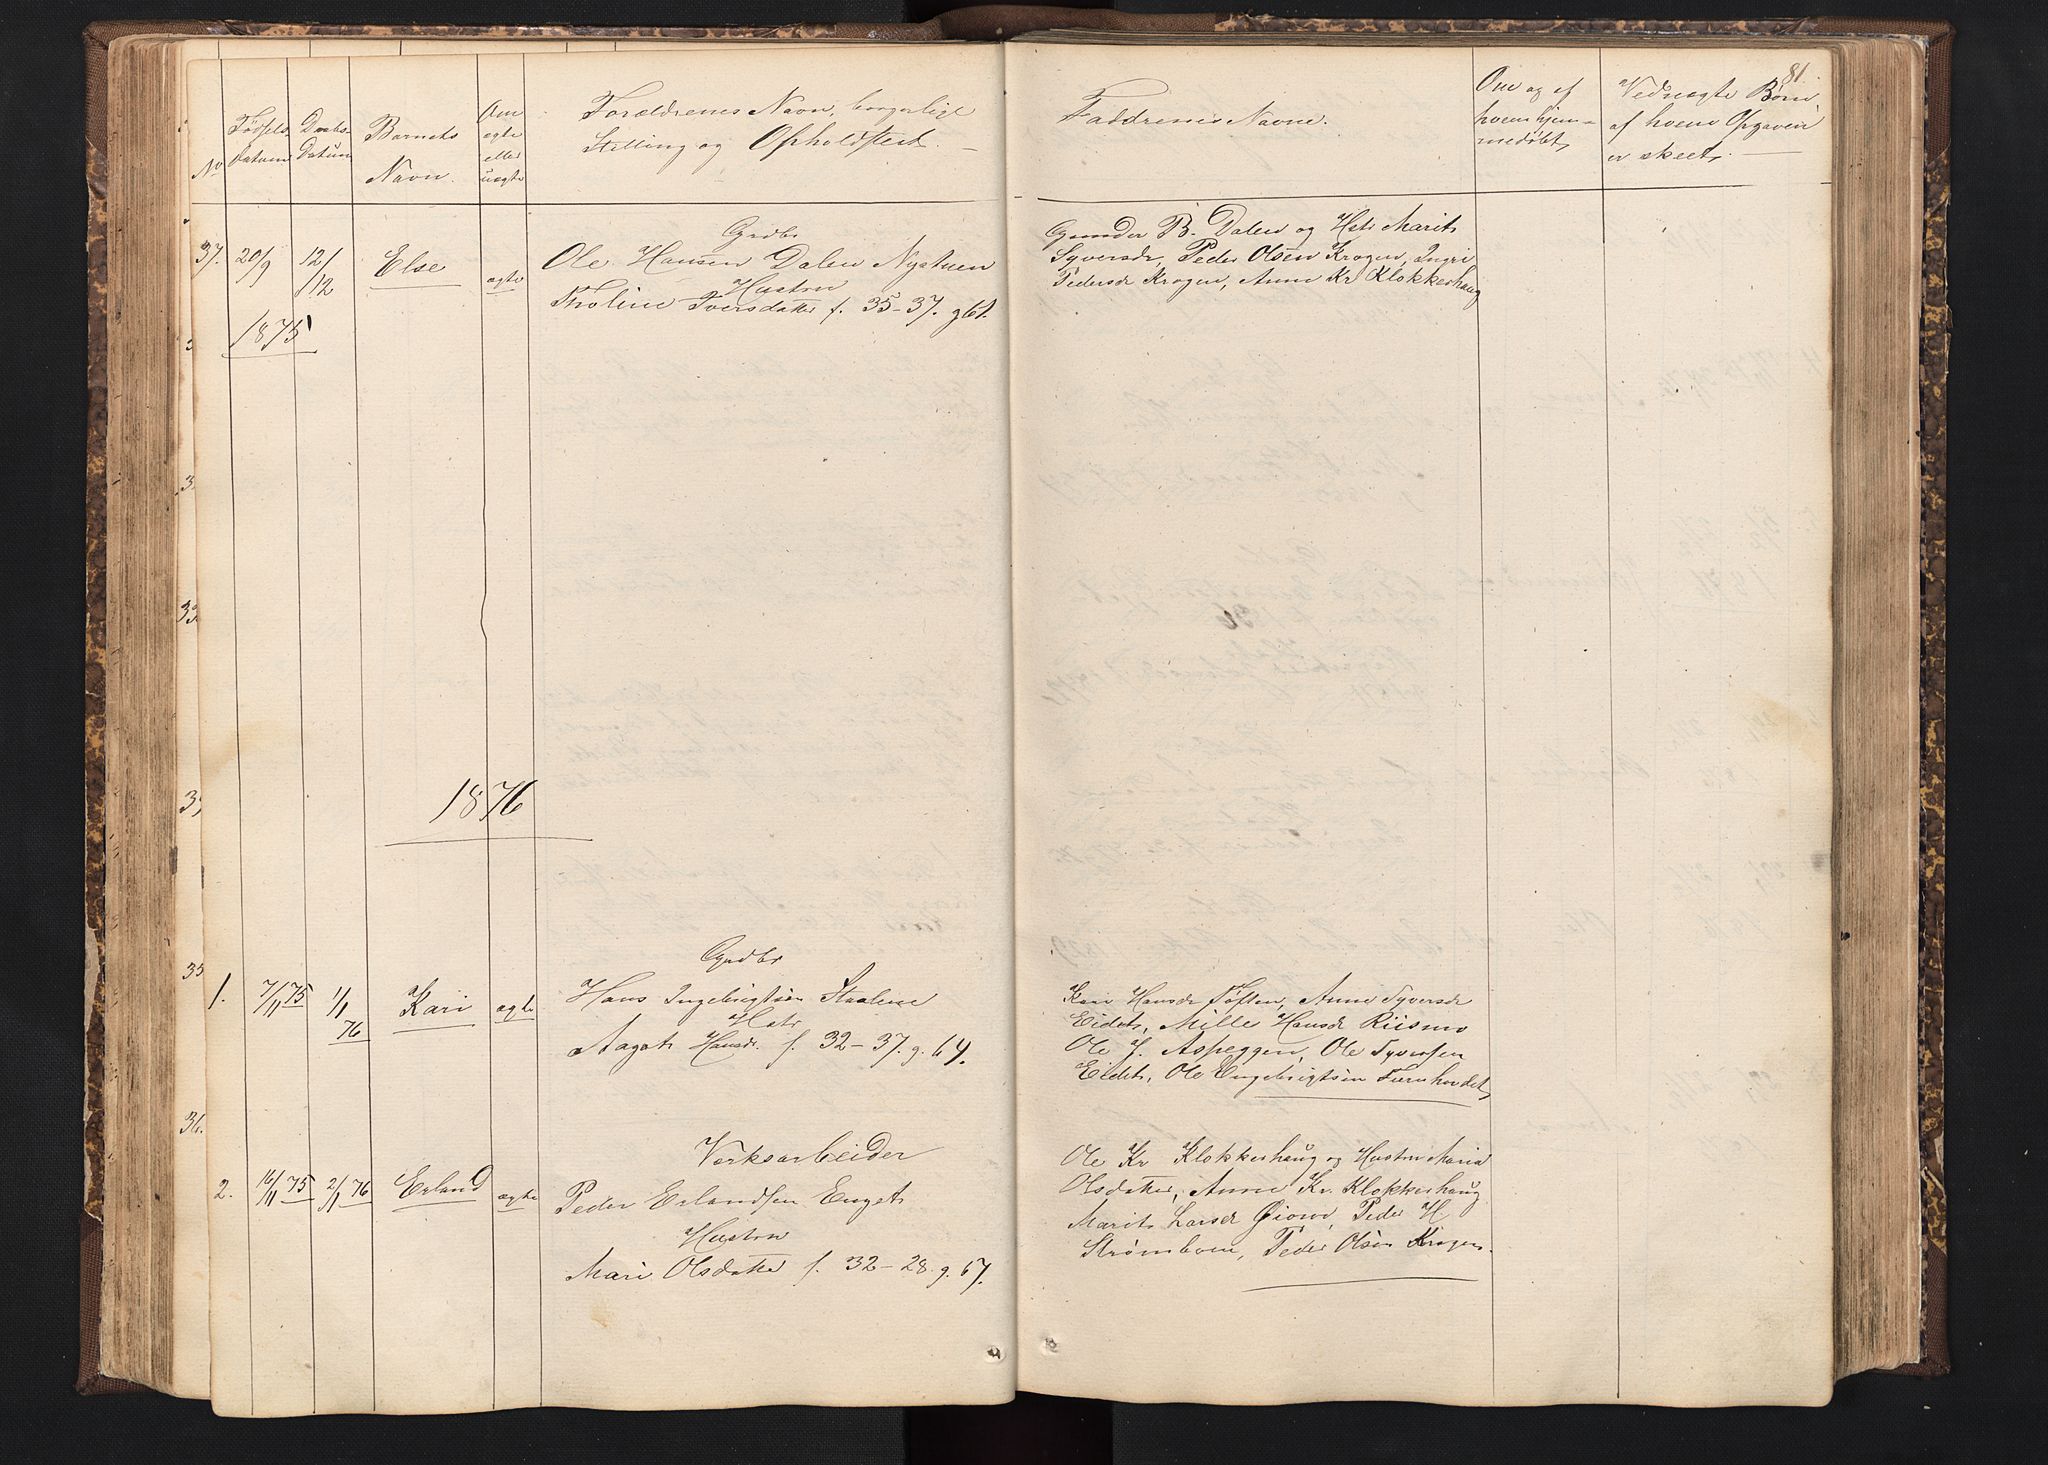 81.
No
Fødsels
Datum
Daabs
Datum
Barnets
Navn.
Om
ægte
eller
uægte
Forældrenes Navn, borgerlige
Stilling og Opholdssted.
Faddrenes Navne.
Om og af
hvem hjem-
medøbt,
Veduægte Børn,
af hvem Opgaven
er skeet,
37. 20/9 12/12 Else ægte
1875
Grdbr
Ole Hansen Dalen Nystuen
Hustru
Tholine Iversdatter f. 35-37. g 61.
Gunder B. Dalen og Hstr Marit
Syversdr, Peder Olsen Krogen, Ingri
Pedersdr Krogen, Anne Kr Klokkerhaug
1876
1. 7/11 75 1/1 76 Kari ægte
Grdbr
Hans Ingebrigtsen
Hstr
Aagot Hansdr. f. 32-37. g. 64.
Kari Hansdr Toften, Anne Syversdr
Eidet, Mille Hansdr Riismo
Ole J. Aspeggen, Ole Syversen
Eidet, Ole Engebrigtsen
2. 16/11 75 2/1 76 Erland ægte
Verksarbeider
Peder Erlandsen Enget
Hustru
Mari Olsdatter f. 32-28. g. 67.
Ole Kr Klokkerhaug og Hustru Maria
Olsdatter, Anne Kr. Klokkerhaug
Marit Larsdr Peder H
Strømboen, Peder Olsen Krogen.
33
35
36.